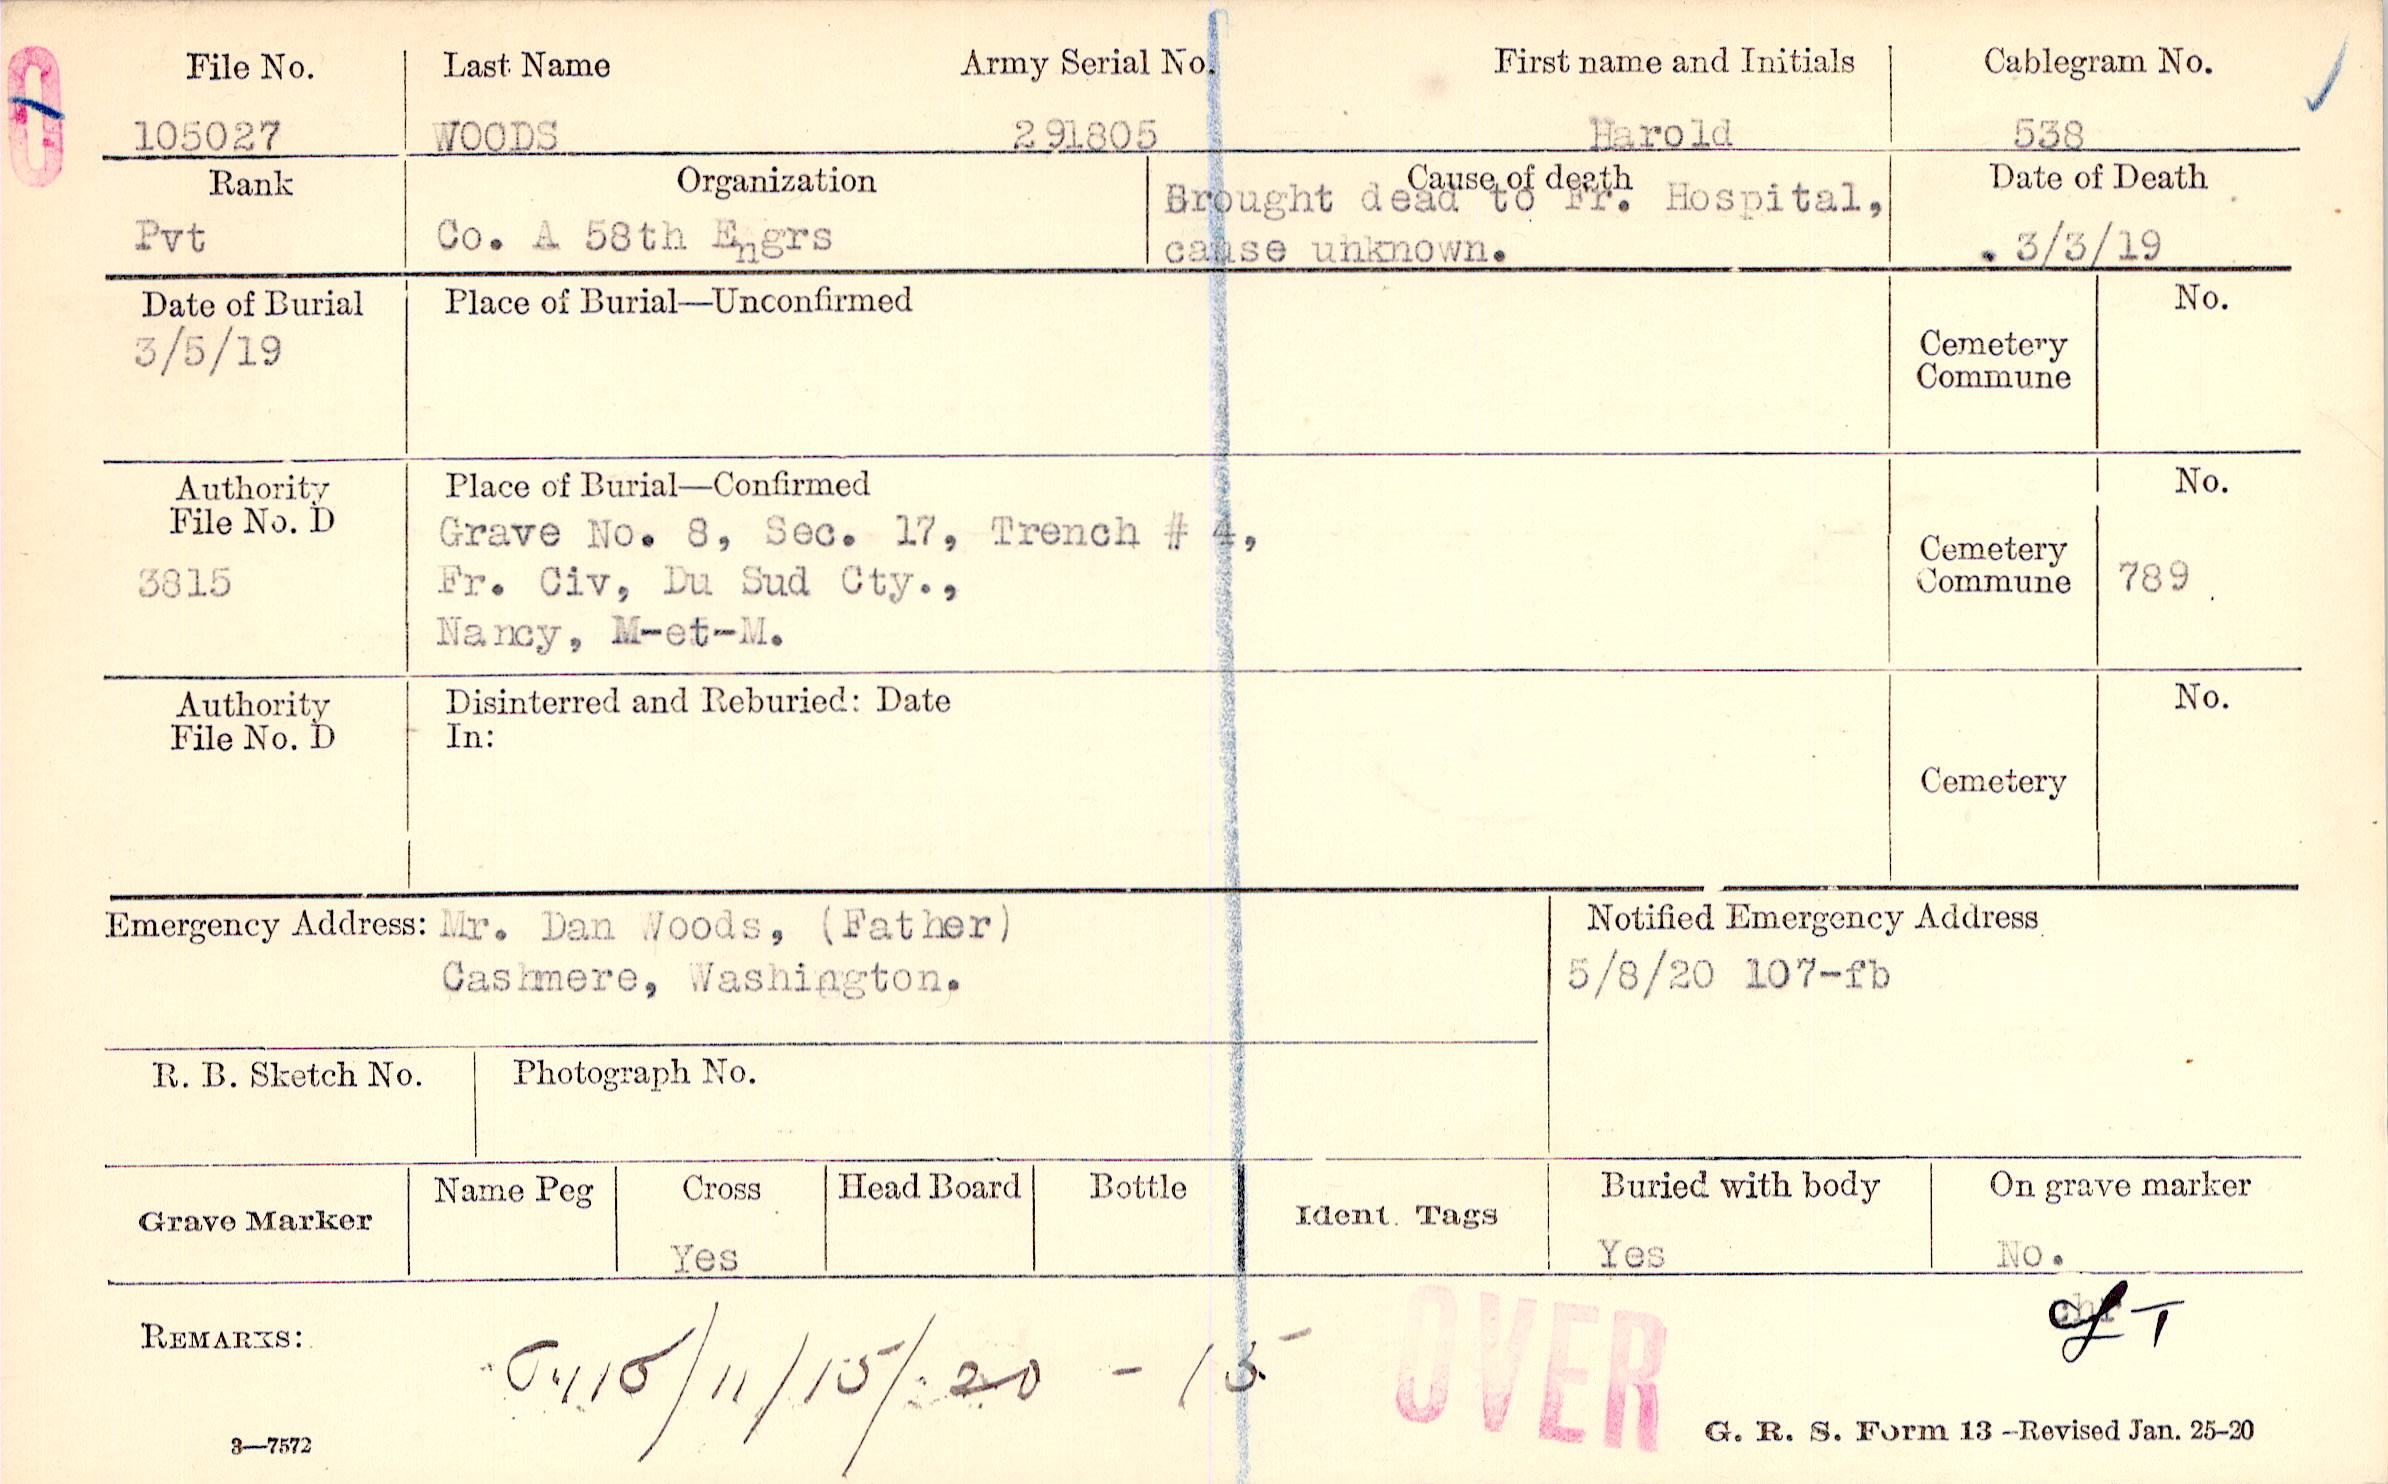 File No. Last Name Army Serial No. First name and Initials Cablegram No.
105027 WOODS 291805 Harold 538
Rank Organization Cause of death Date of Death
Pvt Co. A 58th Engrs Brought dead to Fr. Hospital,
cause unknown. . 3/3/19
Date of Burial Place of Burial—Unconfirmed No.
3/5/19
Cemetery
Commune
Authority Place of Burial—Confirmed No.
File No. D Grave No. 8, Sec. 17, Trench # 4,
3815 Fr. Civ, Du Sud Cty., Cemetery
Commune 789
Nancy, M-et-M.
Authority Disinterred and Reburied: Date No.
File No. D In:
Cemetery
Emergency Address: Mr. Dan Woods, (Father) Notified Emergency Address
Cashmere, Washington. 5/8/20 107-fb
R. B. Sketch No. Photograph No.
Grave Marker Name Peg Cross Head Board Bottle Ident. Tags Buried with body On grave marker
Yes Yes No.
REMARKS: /11/15/20 - 15
OVER
3—7572 G. R. S. Form 13 -Revised Jan. 25-20